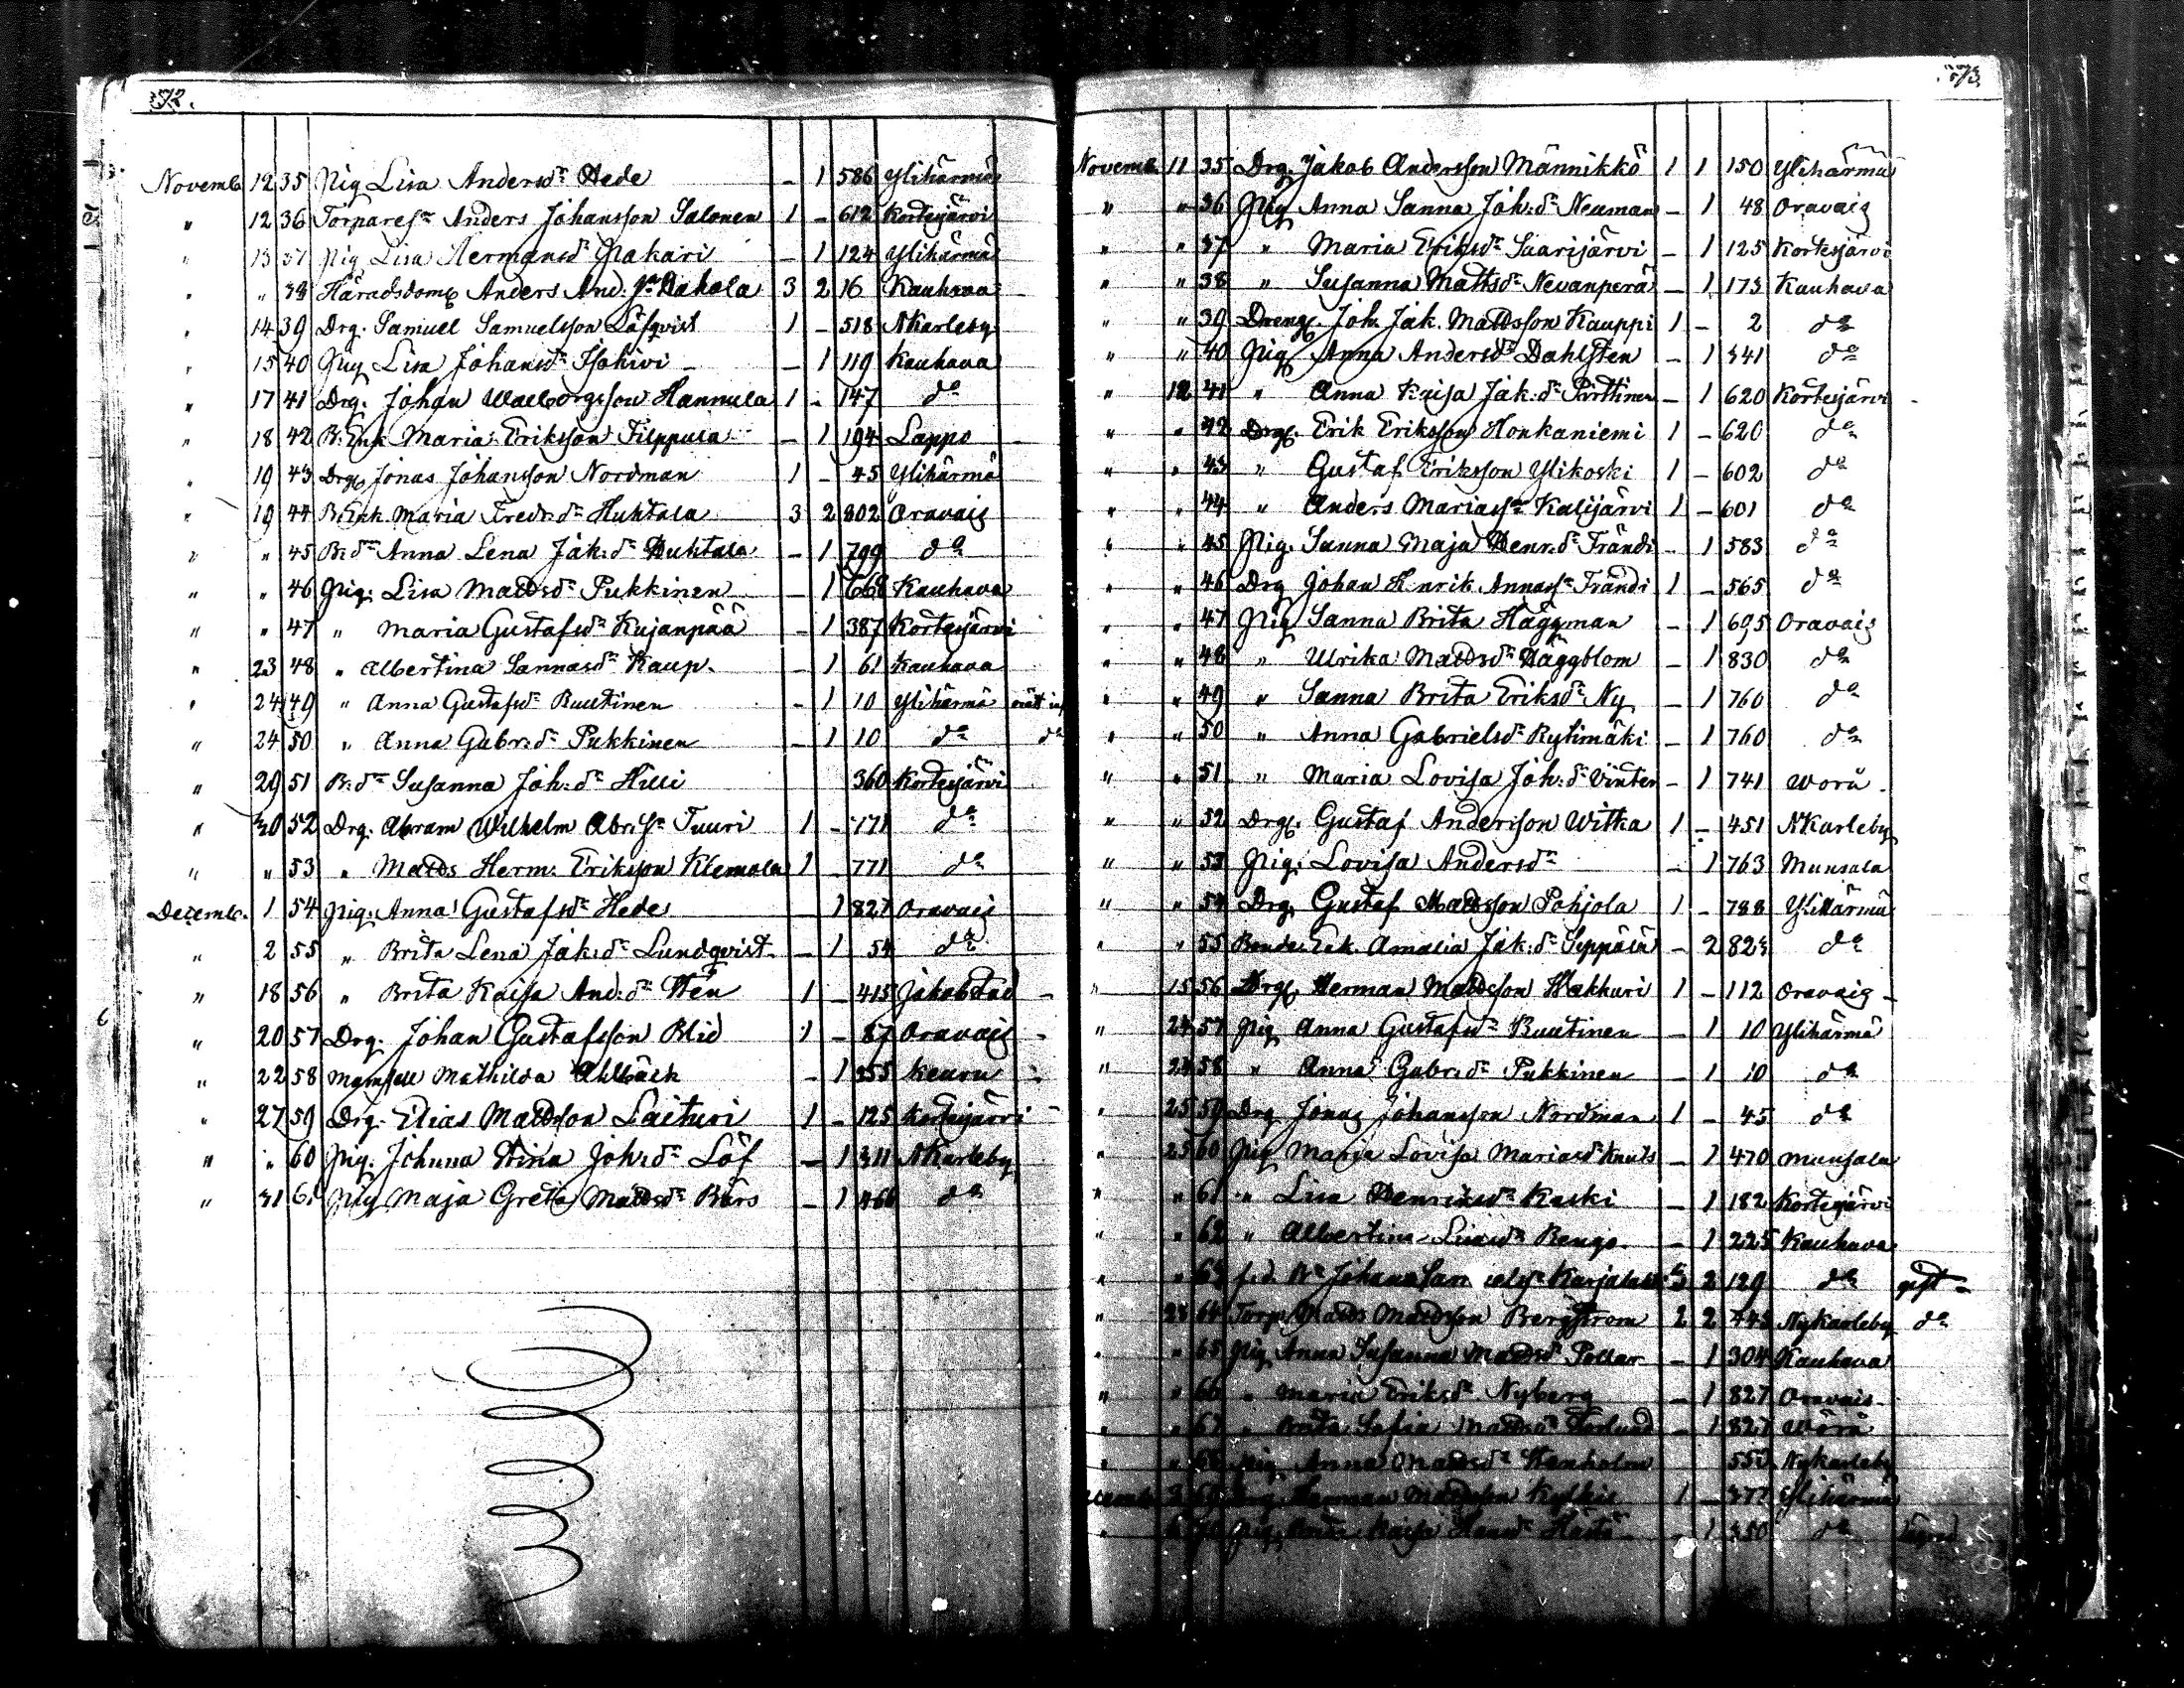 572.
Novemb. 12 35 Pig Lisa Andersdr Hede - 1 586 Ylihärmä
" 12 36 Torparesn Anders Johansson Salonen 1 - 612 Kortesjärvi
" 13 37 Pig Lisa Hermansdr Pakari - 1 124 Ylihärmä
" " 38 Häradsdom. Anders And. sn Hakala 3 2 16 Kauhava
" 14 39 Drg. Samuel Samuelsson Löfqvist 1 - 518 NKarleby
" 15 40 Pig Lisa Johansdr Isokivi - 1 119 Kauhava
" 17 41 Drg. Johan Walborgsson Hannula 1 - 147 do
" 18 42 B. Enk Maria Eriksson Filppula - 1 194 Lappo
" 19 43 Drg. Jonas Johansson Nordman 1 - 45 Ylihärmä
" 19 44 B. Enk. Maria Fredr. dr Huhtala 3 2 802 Oravais
" " 45 B. dr Anna Lena Jak: dr Huhtala - 1 799 do
" " 46 Pig: Lisa Mattsdr Pukkinen - 1 668 Kauhava
" " 47 " Maria Gustafsdr Kujanpää - 1 387 Kortesjärvi
" 23 48 " Albertina Sannasdr Kaup. - 1 61 Kauhava
" 24 49 " Anna Gustafsdr Buutinen - 1 10 Ylihärmä
" 24 50 " Anna Gabr: dr Pukkinen - 1 10 do do
" 29 51 B: dr Susanna Joh: dr Hilli 360 Kortesjärvi
" 30 52 Drg. Abram Wilhelm Abr: sn Tuuri 1 - 771 do
" " 53 " Matts Herm: Eriksson Klemola 1 - 771 do
Decemb. 1 54 Pig. Anna Gustafsdr Hede - 1 827 Oravais
" 2 55 " Brita Lena Jak: dr Lundqvist - 1 54 do
" 18 56 " Brita Kajsa And: dr 1 - 415 Jakobstad
" 20 57 Drg. Johan Gustafsson Blid 1 - 87 Oravais
" 22 58 Mamsell Mathilda Ahlbäck - 1 355 Keuru
" 27 59 Drg. Elias Mattsson Laituri 1 - 125 Kortesjärvi
" " 60 Pig. Johanna Stina Joh: dr Löf - 1 311 NKarleby
" 31 61 Pig Maja Greta Mattsdr Bärs - 1 466 do
573.
Novemb. 11 35 Drg. Jakob Andersson Männikkö 1 1 150 Ylihärmä
" " 36 Pig Anna Sanna Joh: dr Neuman - 1 48 Oravais
" " 37 " Maria Eriksdr Saarijärvi - 1 125 Kortesjärvi
" " 38 " Susanna Mattsdr Nevanperä - 1 173 Kauhava
" " 39 Dreng. Joh. Jak. Mattsson Kauppi 1 - 2 do
" " 40 Pig Anna Andersdr Dahlsten - 1 341 do
" 12 41 " Anna Kajsa Jak: dr Pirttinen - 1 620 Kortesjärvi
" " 42 Drg. Erik Eriksson Honkaniemi 1 - 620 do
" " 43 " Gustaf Eriksson Ylikoski 1 - 602 do
" " 44 " Anders Mariassn Kalijärvi 1 - 601 do
" " 45 Pig. Sanna Maja Henr: dr Frändi - 1 583 do
" " 46 Drg Johan Henrik Annassn Frändi 1 - 565 do
" " 47 Pig Sanna Brita Häggman - 1 695 Oravais
" " 48 " Ulrika Mattsdr Häggblom - 1 830 do
" " 49 " Sanna Brita Eriksdr Ny - 1 760 do
" " 50 " Anna Gabrielsdr Rytimäki - 1 760 do
" " 51 " Maria Lovisa Joh: dr Vinter - 1 741 Vörå
" " 52 Drg. Gustaf Andersson Witka 1 - 451 NKarleby
" " 53 Pig. Lovisa Andersdr - 1 763 Munsala
" " 54 Drg. Gustaf Mattsson Pohjola 1 - 788 Ylihärmä
" " 55 Bonde Enk. Amalia Jak: dr Seppälä - 2 823 do
" 15 56 Drg. Herman Mattsson Hakkuri 1 - 112 Oravais
" 24 57 Pig Anna Gustafsdr Buutinen - 1 10 Ylihärmä
" 24 58 " Anna Gabr: dr Pukkinen - 1 10 do
" 25 59 Drg Jonas Johansson Nordman 1 - 45 do
" 25 60 Pig Maria Lovisa Mariasdr Knuts - 1 470 Munsala
" " 61 " Lisa Henriksdr Kaski - 1 182 Kortesjärvi
" " 62 " Albertina Lisasdr Rengo - 1 225 Kauhava
" " 63 f.d. Johan 3 2 129 do gift
" 28 64 Torp. Matts Mattsson Bergström 2 2 445 Nykarleby do
" " 65 Pig Anna Susanna Mattsdr Pollar - 1 304 Kauhava
" " 66 " Maria Eriksdr Nyberg - 1 827 Oravais
" " 67 " Brita Sofia Mattsdr - 1 827 Vörå
" " 68 Pig Anna Mattsdr 550 Nykarleby
Decemb. 69 Drg. Herman Mattsson 1 - 377 Ylihärmä
" 70 Pig Kajsa - 1 350 do